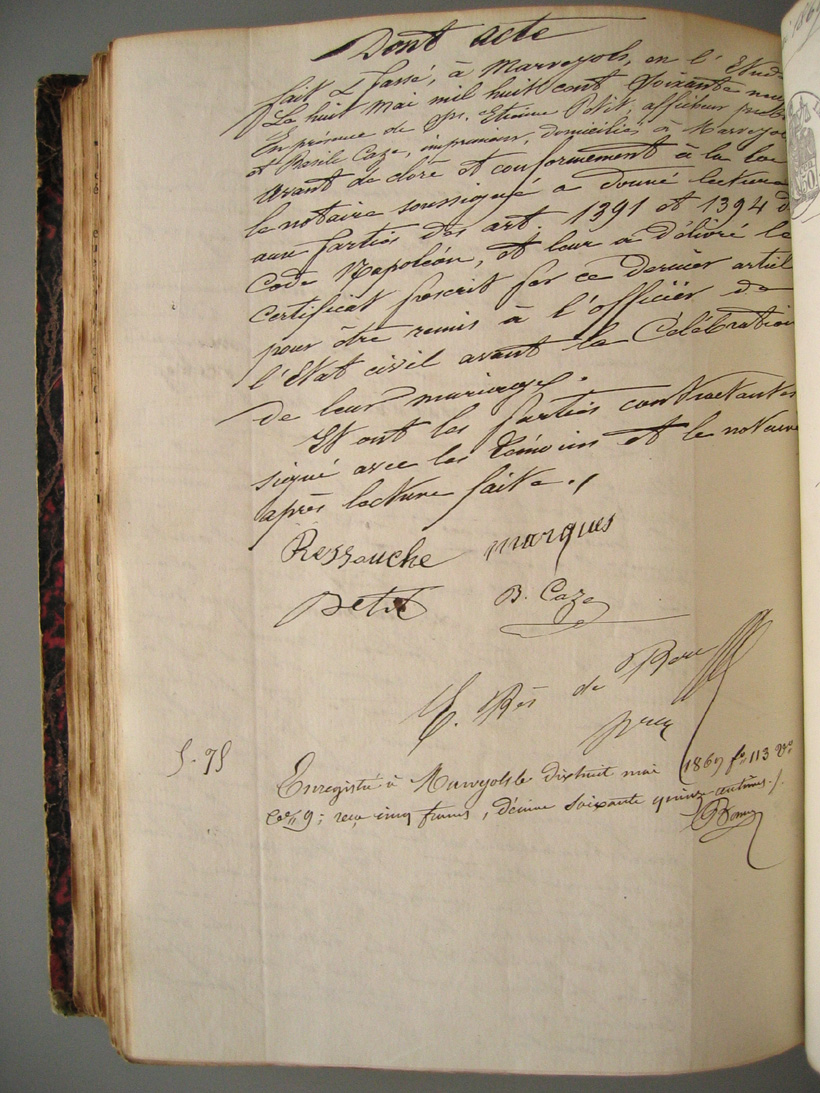 Dont acte
fait & passé, à Marvejols, en l'Etude
Le huit mai mil huit cent soixante neuf
En présence de Mrs. Etienne Petit, afficheur public
et Basile Caze, imprimeur, domiciliés à Marvejols
Avant de clore et conformément à la loi
le notaire soussigné a donné lecture
aux parties des art. 1391 et 1394 d
Code Napoléon, et leur a délivré le
certificat prescrit par ce dernier articl
pour être remis à l'officier de
l'Etat civil avant la Célébration
de leur mariage.
Et ont les parties contractantes
signé avec les témoins et le notaire
après lecture faite.
Ressouche marques
petit B. Caze
de
5.75
Enregistré à Marvejols le dixhuit mai 1869 fo 113 Vo
Ce 9; reçu cinq francs, décime soixante quinze centimes.